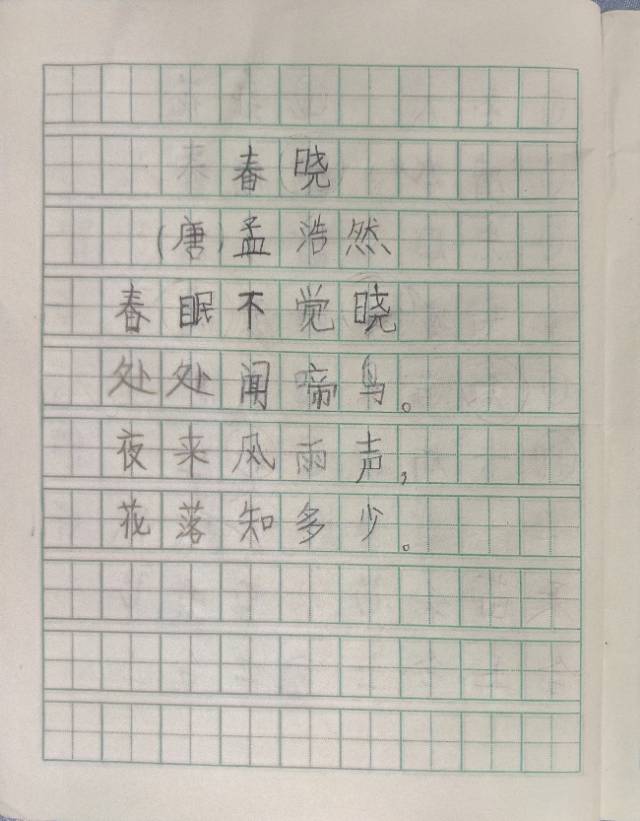 春晓
(唐)孟浩然
春眠不觉晓
处处闻啼鸟。
夜来风雨声,
花落知多少。